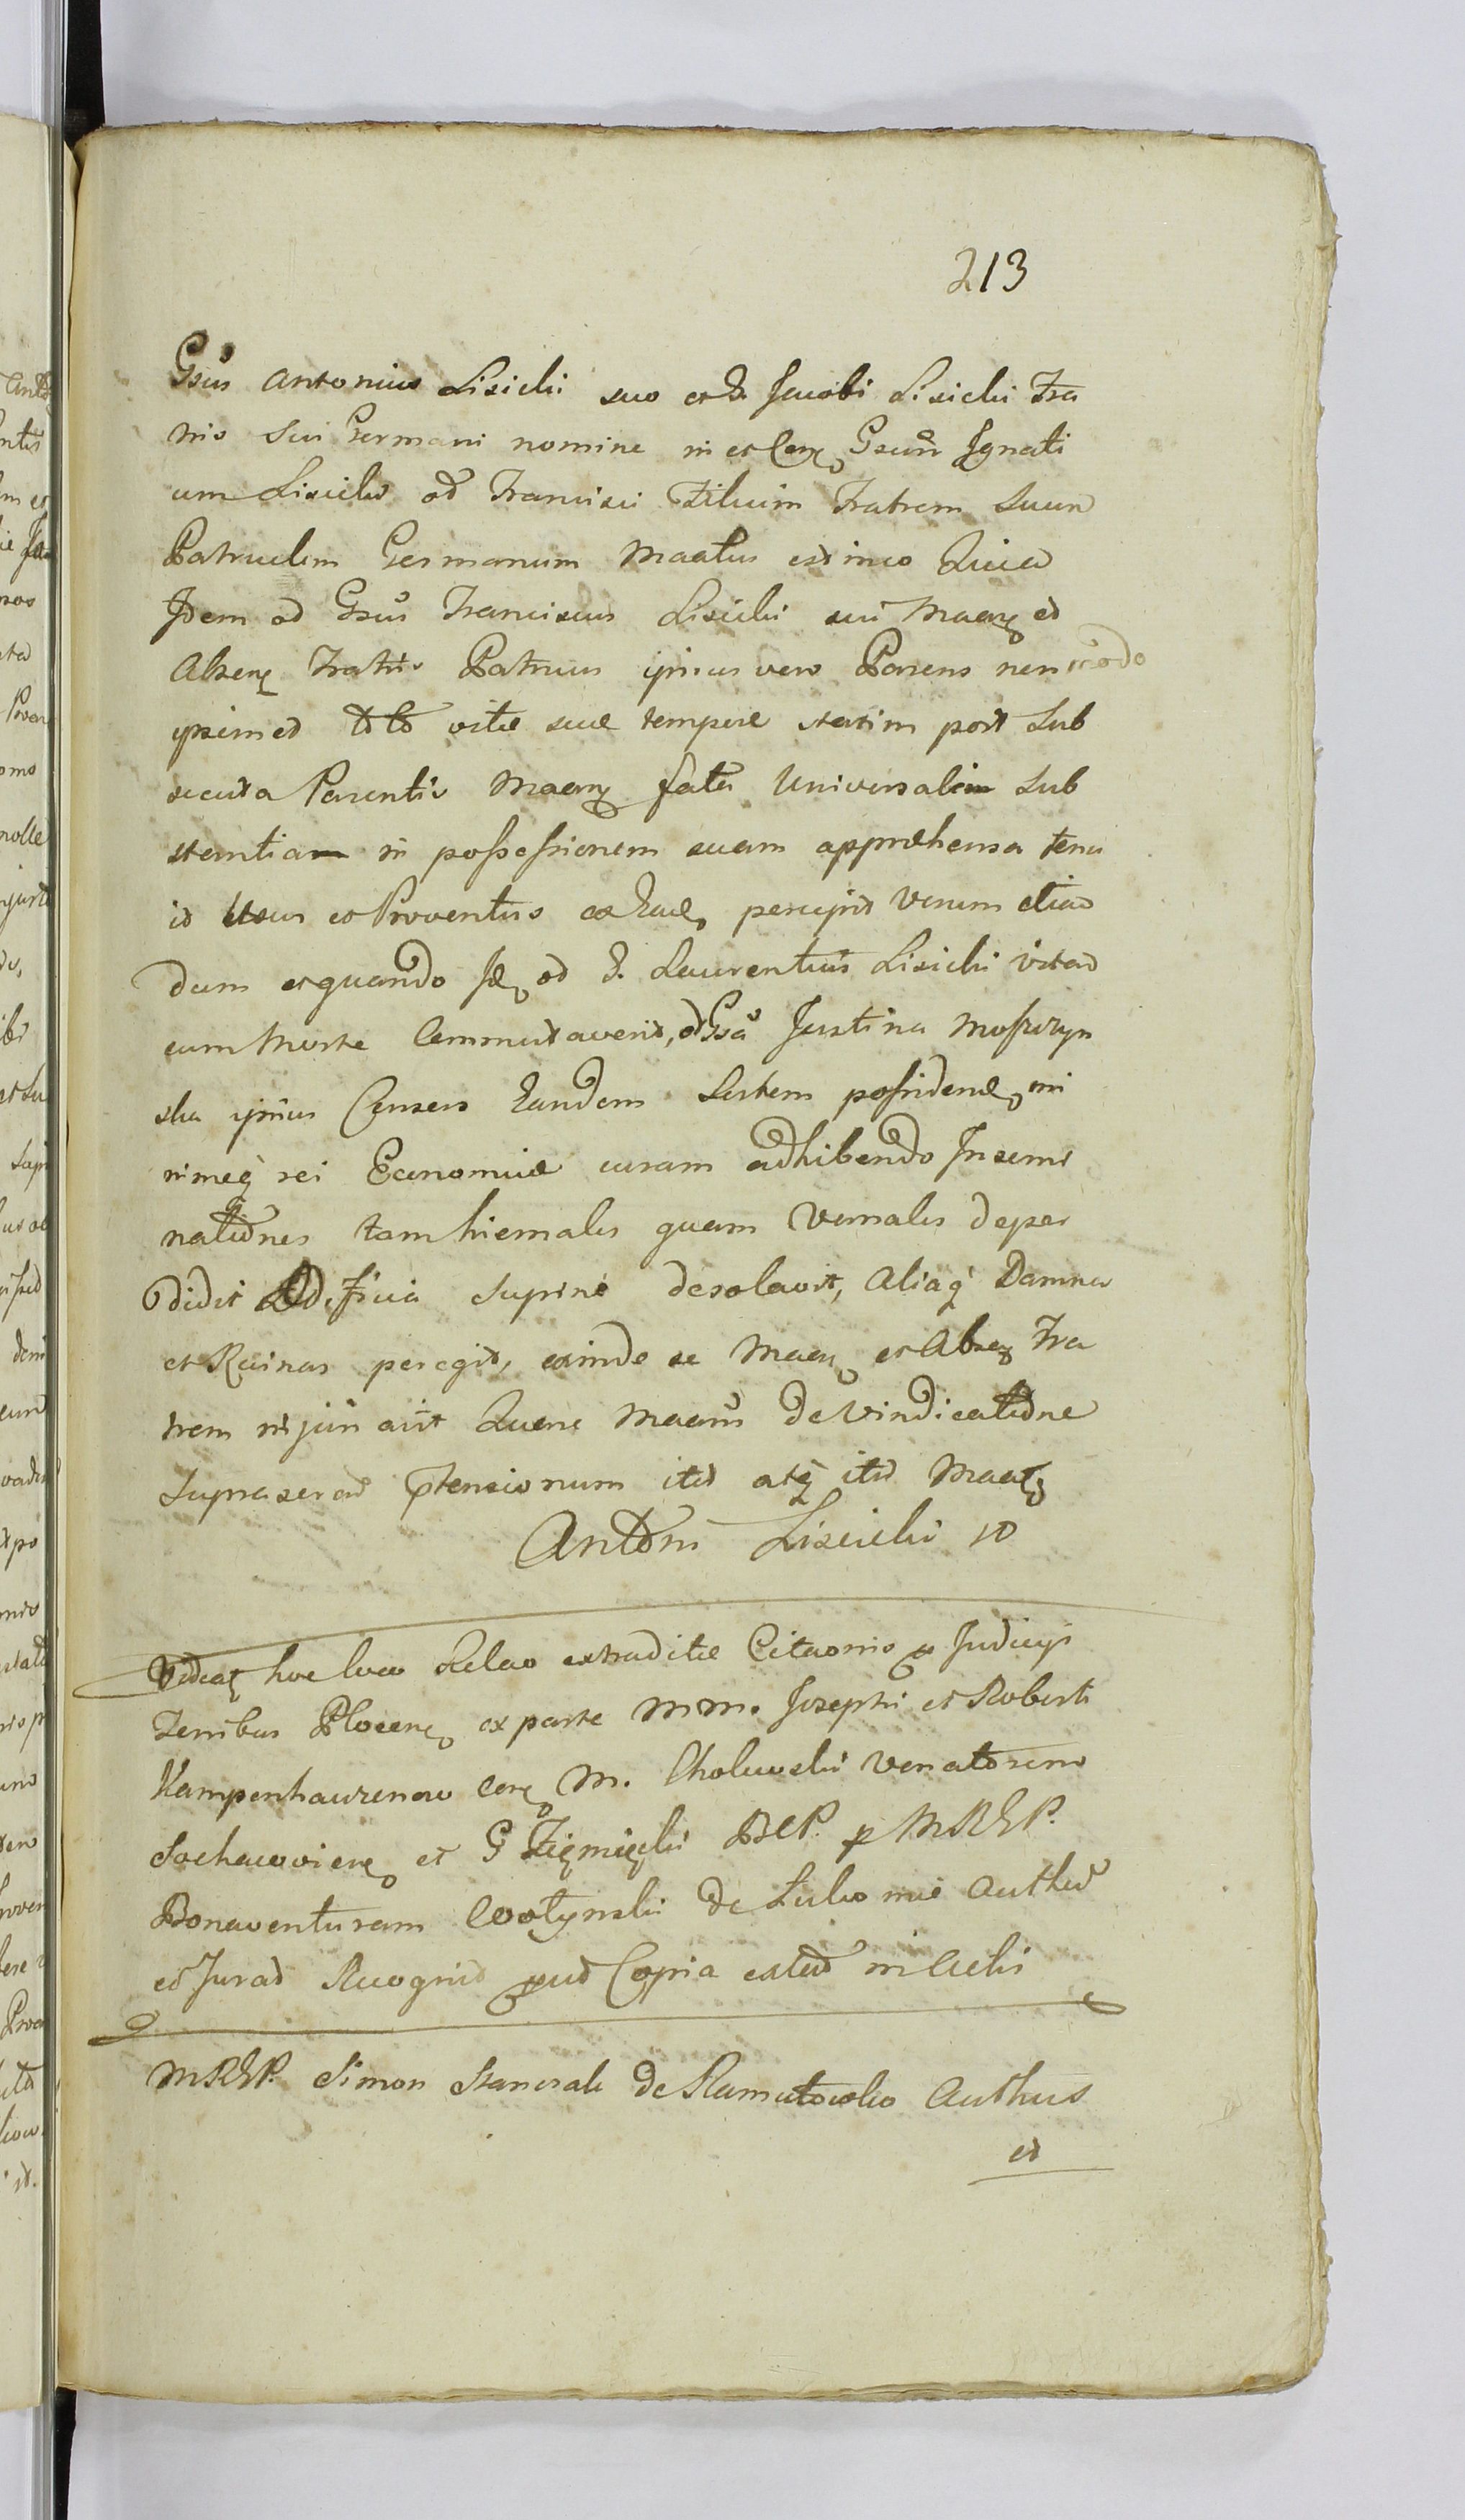 213
Gsus Antonius Lisicki suo et G. Jacobi Lisicki Fra
tris sui Germani nomine in et Conq Gsum Ignati
um Lisicki od Francisci Filium Fratrem Suum
Patruelem Germanum Maatus est imo Quia
Idem od Gsus Franciscus Lisicki sui Maanq et
Absenq Fratris Patruus ipsius vero Parens non modo
ipsemet toto vitæ suæ tempore statim post Sub
secuta Parentis Maanq fata Universalem Sub
stantiam in possessionem suam appræhensa tenu
it Usus et Proventus percepit Verum etiam
dum et quando od G. Laurentius Lisicki vitam
cum Morte Commutaverit, od Gsa Justina Moszczyn
ska ipsius Consors Eandem Sortem possidendo mi
nimeq rei Economiæ curam adhibendo Insemi
nationes tam hiemales quam Vernales deper
didit Ædificia supine desolavit, Aliaq Damna
et Ruinas peregit, exinde se Maanq et Absenq Fra
trem injuriavit Quare Maanus de Vindicatione
Supraser ad Ptensionum itd atq itd Maatq
Antoni Lisicki m
Videatq hoc loco Relao extraditæ Citaonis p Judicijs
Terribus Plocenq ex parte MM. Josephi et Roberti
Kampenhauzenow Conq M. Cholewski Venatorem
Sochacoviensq et G BCP. p MRGP.
Bonaventuram Wotynski De Authen
et Jurad Recognit pud Copia extat in Actis
MRGP. Simon Stanisak De Ramutowko Authus
et